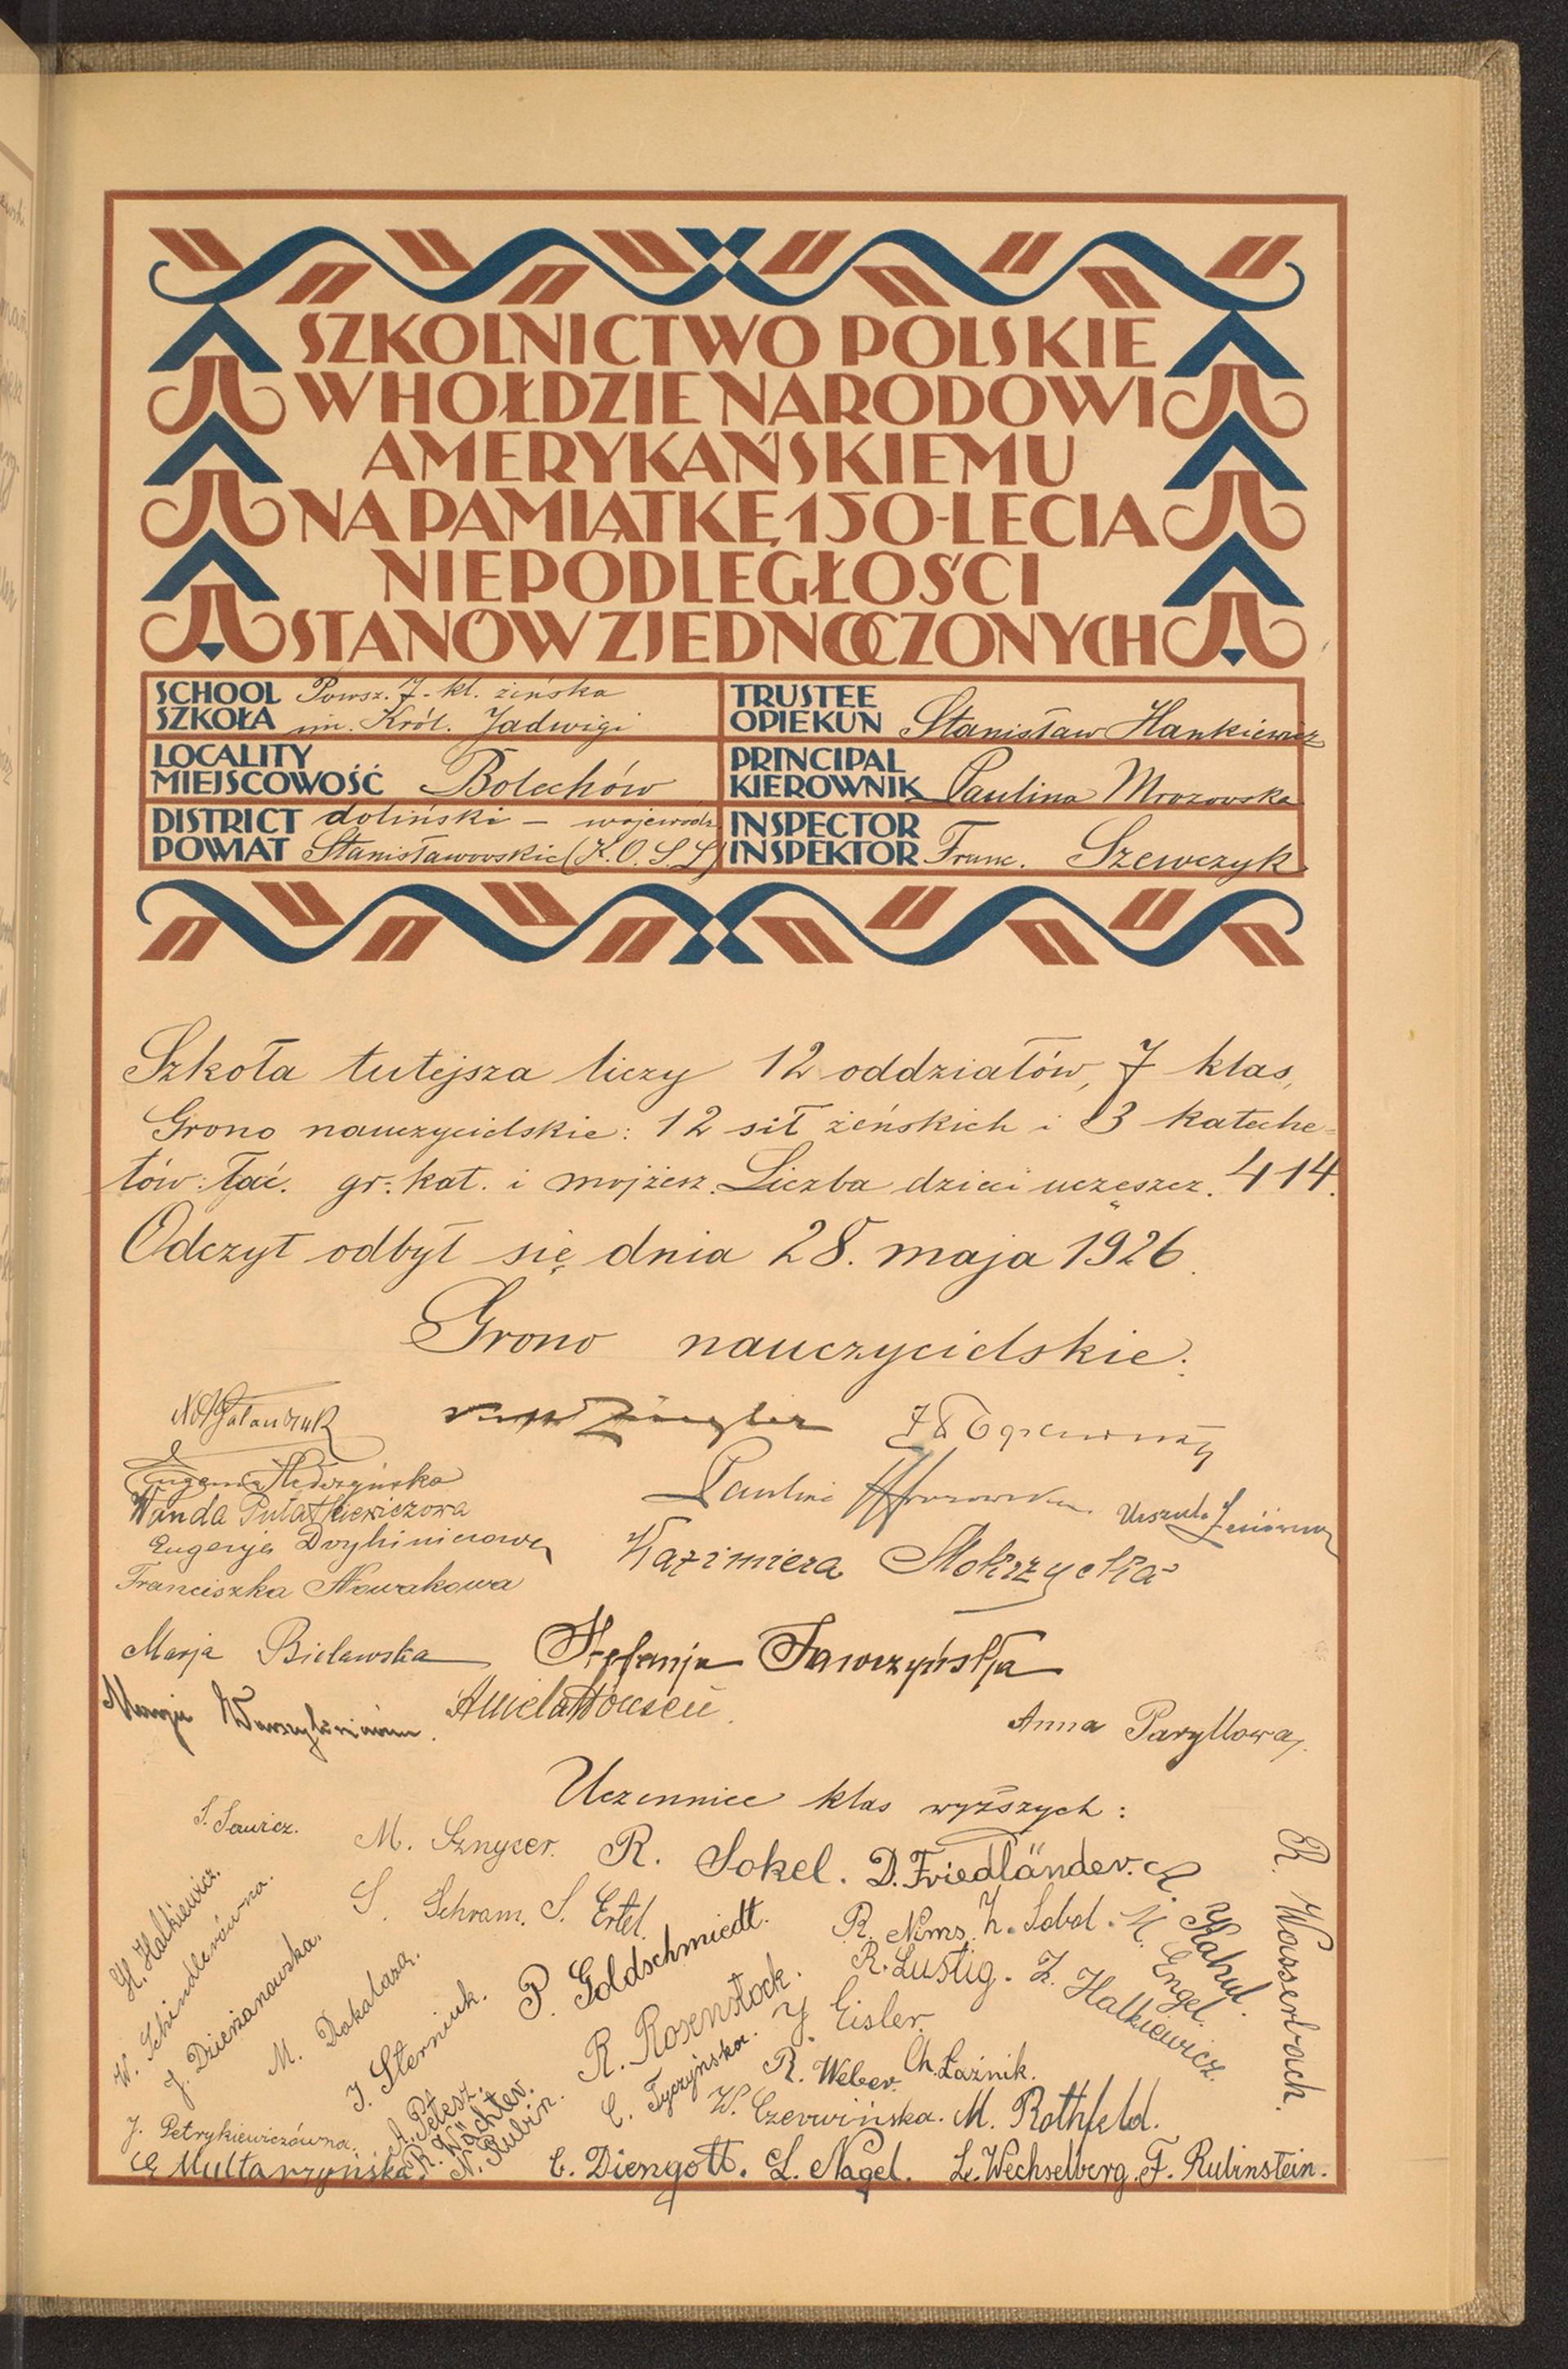 SZKOLNICTWO POLSKIE
W HOŁDZIE NARODOWI
AMERYKAŃSKIEMU
NA PAMIĄTKĘ 150-LECIA
NIEPODLEGŁOŚCI
STANÓW ZJEDNOCZONYCH
SCHOOL
SZKOŁA
Powsz. 7-kl. żeńska
im. Król. Jadwigi
TRUSTEE
OPIEKUN
Stanisław Hankiewicz
LOCALITY
MIEJSCOWOŚĆ
Bolechów
PRINCIPAL
KIEROWNIK
Paulina Mrozowska
DISTRICT
POWIAT
doliński – wojewódz.
Stanisławowskie (K.O.S.L)
INSPECTOR
INSPEKTOR
Franc. Szewczyk
Szkoła tutejsza liczy 12 oddziałów, 7 klas,
Grono nauczycielskie: 12 sił żeńskich i 3 kateche=
tów: łać. gr.-kat. i mojżesz. Liczba dzieci uczęszcz. 414.
Odczyt odbył się dnia 28. maja 1926.
Grono nauczycielskie:
Ziegler
Paulina Mrozowska
Wanda Pułatkiewiczowa
Urszula
Eugenja
Kazimiera Mokrzycka
Franciszka Nowakowa
Marja Bielawska
Stefanja Tawczyńska
Marja
Aniela
Anna Paryllowa
Uczennice klas wyższych:
S. Sawicz.
M. Sznycer.
R. Sokel.
D. Friedländer.
R. Kahul.
R. Wasserbach.
H. Halkiewicz.
S. Schram.
S. Ertel.
R. Nims.
Z. Sobol.
M. Engel.
W. Schindlerówna.
P. Goldschmiedt.
R. Lustig.
Z. Halkiewicz.
J. Dzierżanowska.
M. Dokalaza.
J. Sterniuk.
R. Rosenstock.
J. Eisler.
A. Petesz.
C. Tyczyńska.
R. Weber.
Ch. Łaźnik.
J. Petrykiewiczówna.
R. Wächter.
N. Rubin.
W. Czerwińska.
M. Rothfeld.
E. Multarzyńska
C. Diengott.
L. Nagel.
L. Wechselberg.
F. Rubinstein.